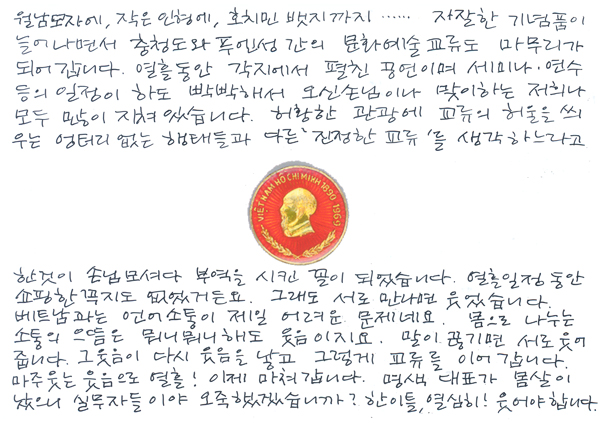 월남모자에, 작은 인형에, 호치민 뱃지까지 …… 자잘한 기념품이
늘어나면서 충청도와 푸옌성 간의 문화예술교류도 마무리가
되어갑니다. 열흘동안 각지에서 펼친 공연이며 세미나·연수
등의 일정이 하도 빡빡해서 오신손님이나 맞이하는 저희나
모두 많이 지쳐있습니다. 허황한 관광에 교류의 허울을 씌
우는 엉터리 없는 행태들과 다른 '진정한 교류'를 생각하느라고
VIỆT NAM HỒ CHÍ MINH 1890 1969
한것이 손님모셔다 부역을 시킨 꼴이 되었습니다. 열흘일정동안
쇼핑한 꼭지도 없었거든요. 그래도 서로 만나면 웃었습니다.
베트남과는 언어소통이 제일 어려운 문제네요. 몸으로 나누는
소통의 으뜸은 뭐니뭐니해도 웃음이지요. 말이 끊기면 서로 웃어
줍니다. 그웃음이 다시 웃음을 낳고 그렇게 교류를 이어갑니다.
마주웃는 웃음으로 열흘! 이제 마쳐갑니다. 명색 대표가 몸살이
났으니 실무자들이야 오죽했겠습니까? 한이틀, 열심히! 웃어야합니다.